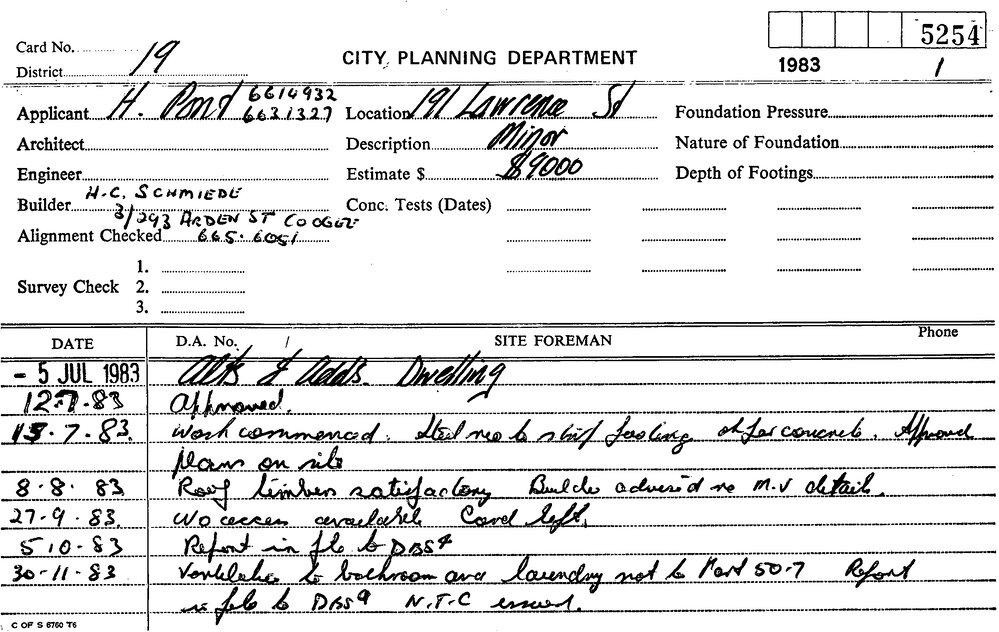 5254
Card No. 19
CITY PLANNING DEPARTMENT
1983 1
District
Applicant H. Pont 6614932
6631327
Location 191 Lawrence St
Foundation Pressure
Architect
Description Minor
Nature of Foundation
Engineer
Estimate $ $9000
Depth of Footings
Builder H.C. SCHMIEDE
3/293 ARDEN ST COOGEE
Conc. Tests (Dates)
Alignment Checked 665.6051
1.
Survey Check 2.
3.
DATE D.A. No. / SITE FOREMAN Phone
- 5 JUL 1983 Alts & Adds. Dwelling
12.7.83 Approved.
13.7.83. Work commenced. Steel re to strip footing ok for concrete. Approved
plans on site
8.8.83 Roof timbers satisfactory Builder advised re M.V details.
27.9.83. No access available Card left.
5 10.83 Report in file to DBS4
30.11.83 Ventilation to bathroom and laundry not to Part 50.7 Report
in file to DBS9 N.T.C issued.
C OF S 6760 T6